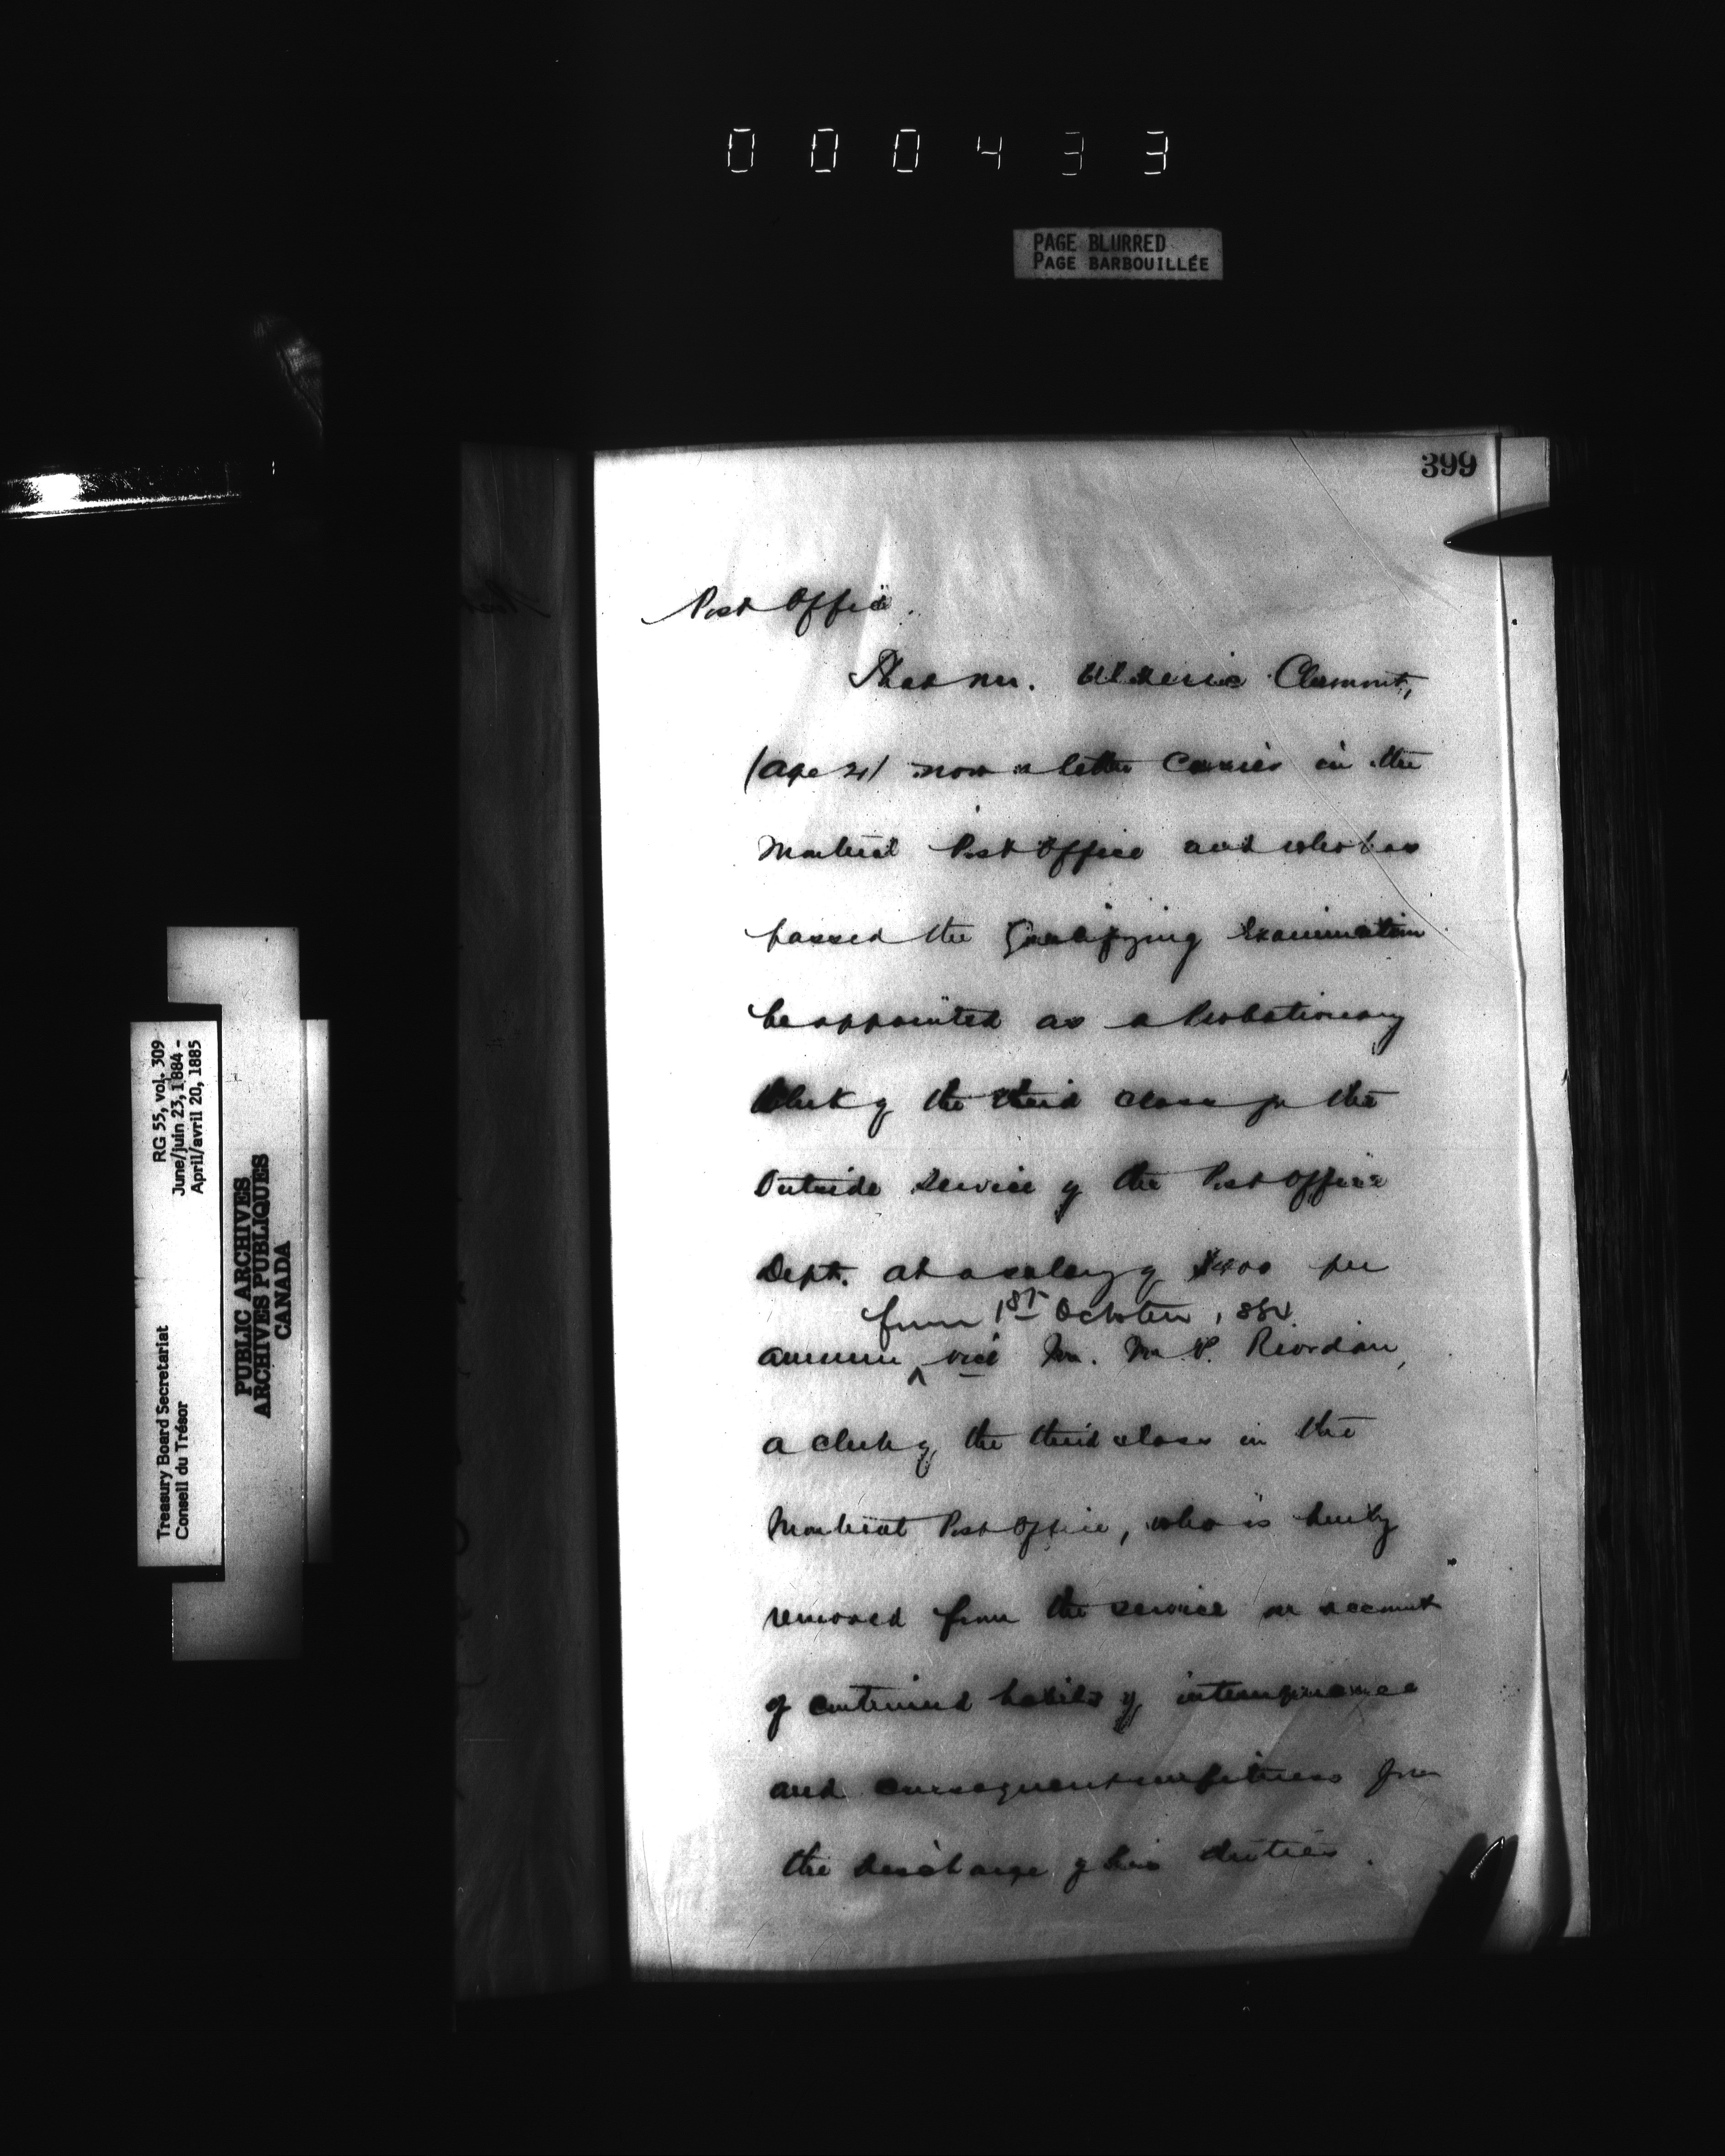 000433
PAGE BLURRED
PAGE BARBOUILLÉE
399
Post Office.
That Mr. Clermont,
(age 21) now a letter Carrier in the
Montreal Post Office and who has
passed the Qualifying Examination
be appointed as a Probationary
Clerk of the third class in the
Outside Service of the Post Office
Dept. at a salary of $400 per
from 1st October, 188
annum ^ vice Mr. M. P. Riordan,
a clerk of the third class in the
Montreal Post Office, who is hereby
removed from the service on account
of continued habits of intemperance
and consequent unfitness for
the discharge of his duties.
RG 55, vol. 309
June/juin 23, 1884 -
April/avril 20, 1885
Treasury Board Secretariat
Conseil du Trésor
PUBLIC ARCHIVES
ARCHIVES PUBLIQUES
CANADA